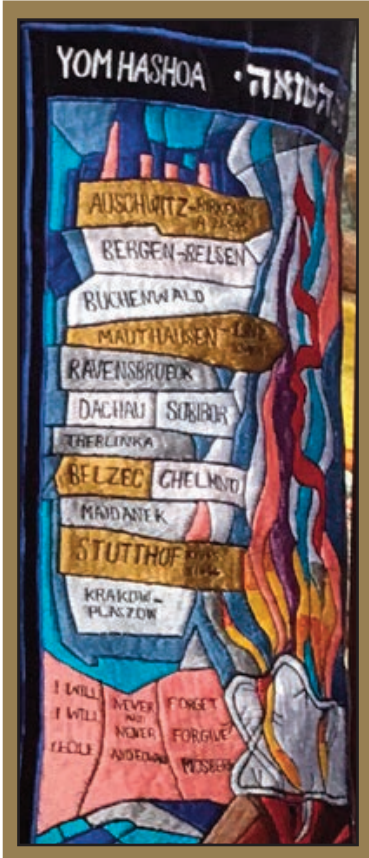 YOM HASHOA · השואה
AUSCHWITZ-BIRKENAU
BERGEN-BELSEN
BUCHENWALD
MAUTHAUSEN
RAVENSBRUECK
DACHAU SOBIBOR
TREBLINKA
BELZEC CHELMNO
MAJDANEK
STUTTHOF
KRAKOW-
PLASZOW
I WILL NEVER FORGET
I WILL NEVER FORGIVE
MOSBERG